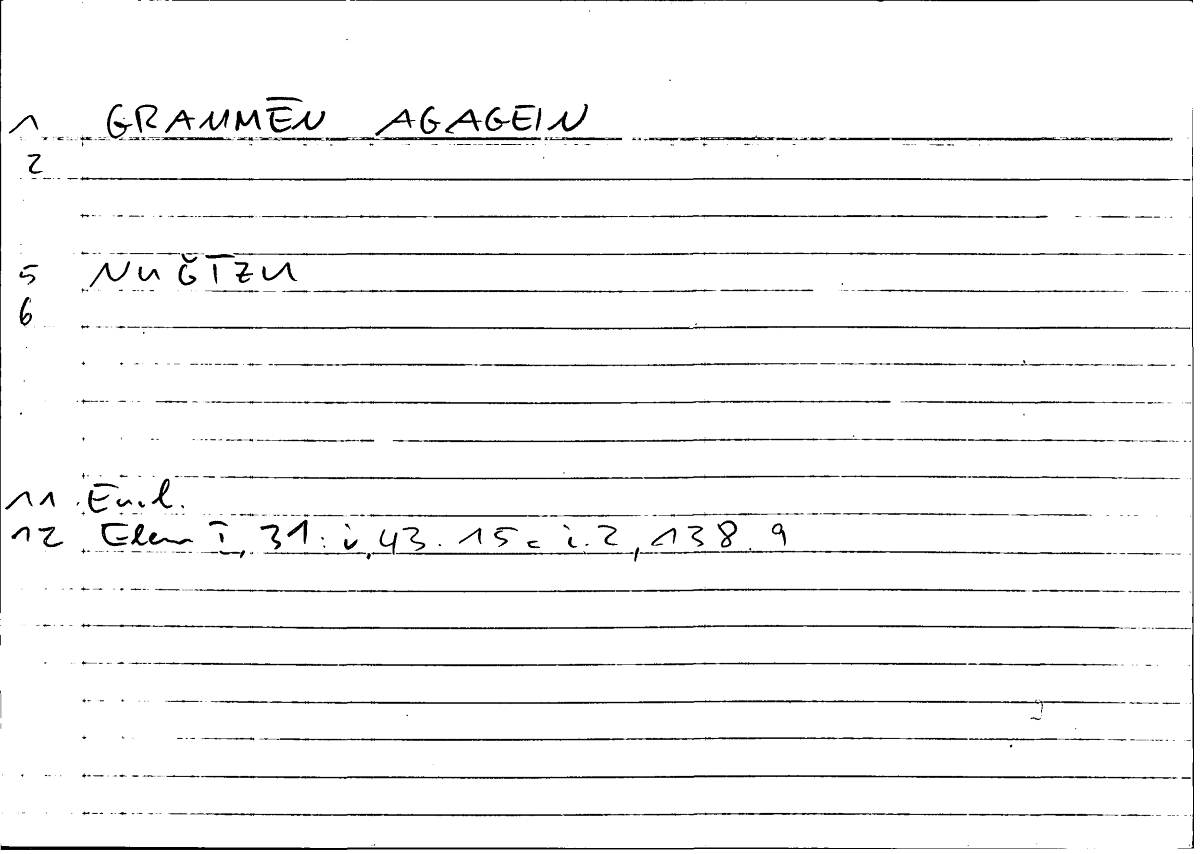 1 GRAMMĒN AGAGEIN
2
5 NuǦĪZU
6
11 Eucl.
12 Elem I, 31: i, 43. 15 = i. 2, 138. 9